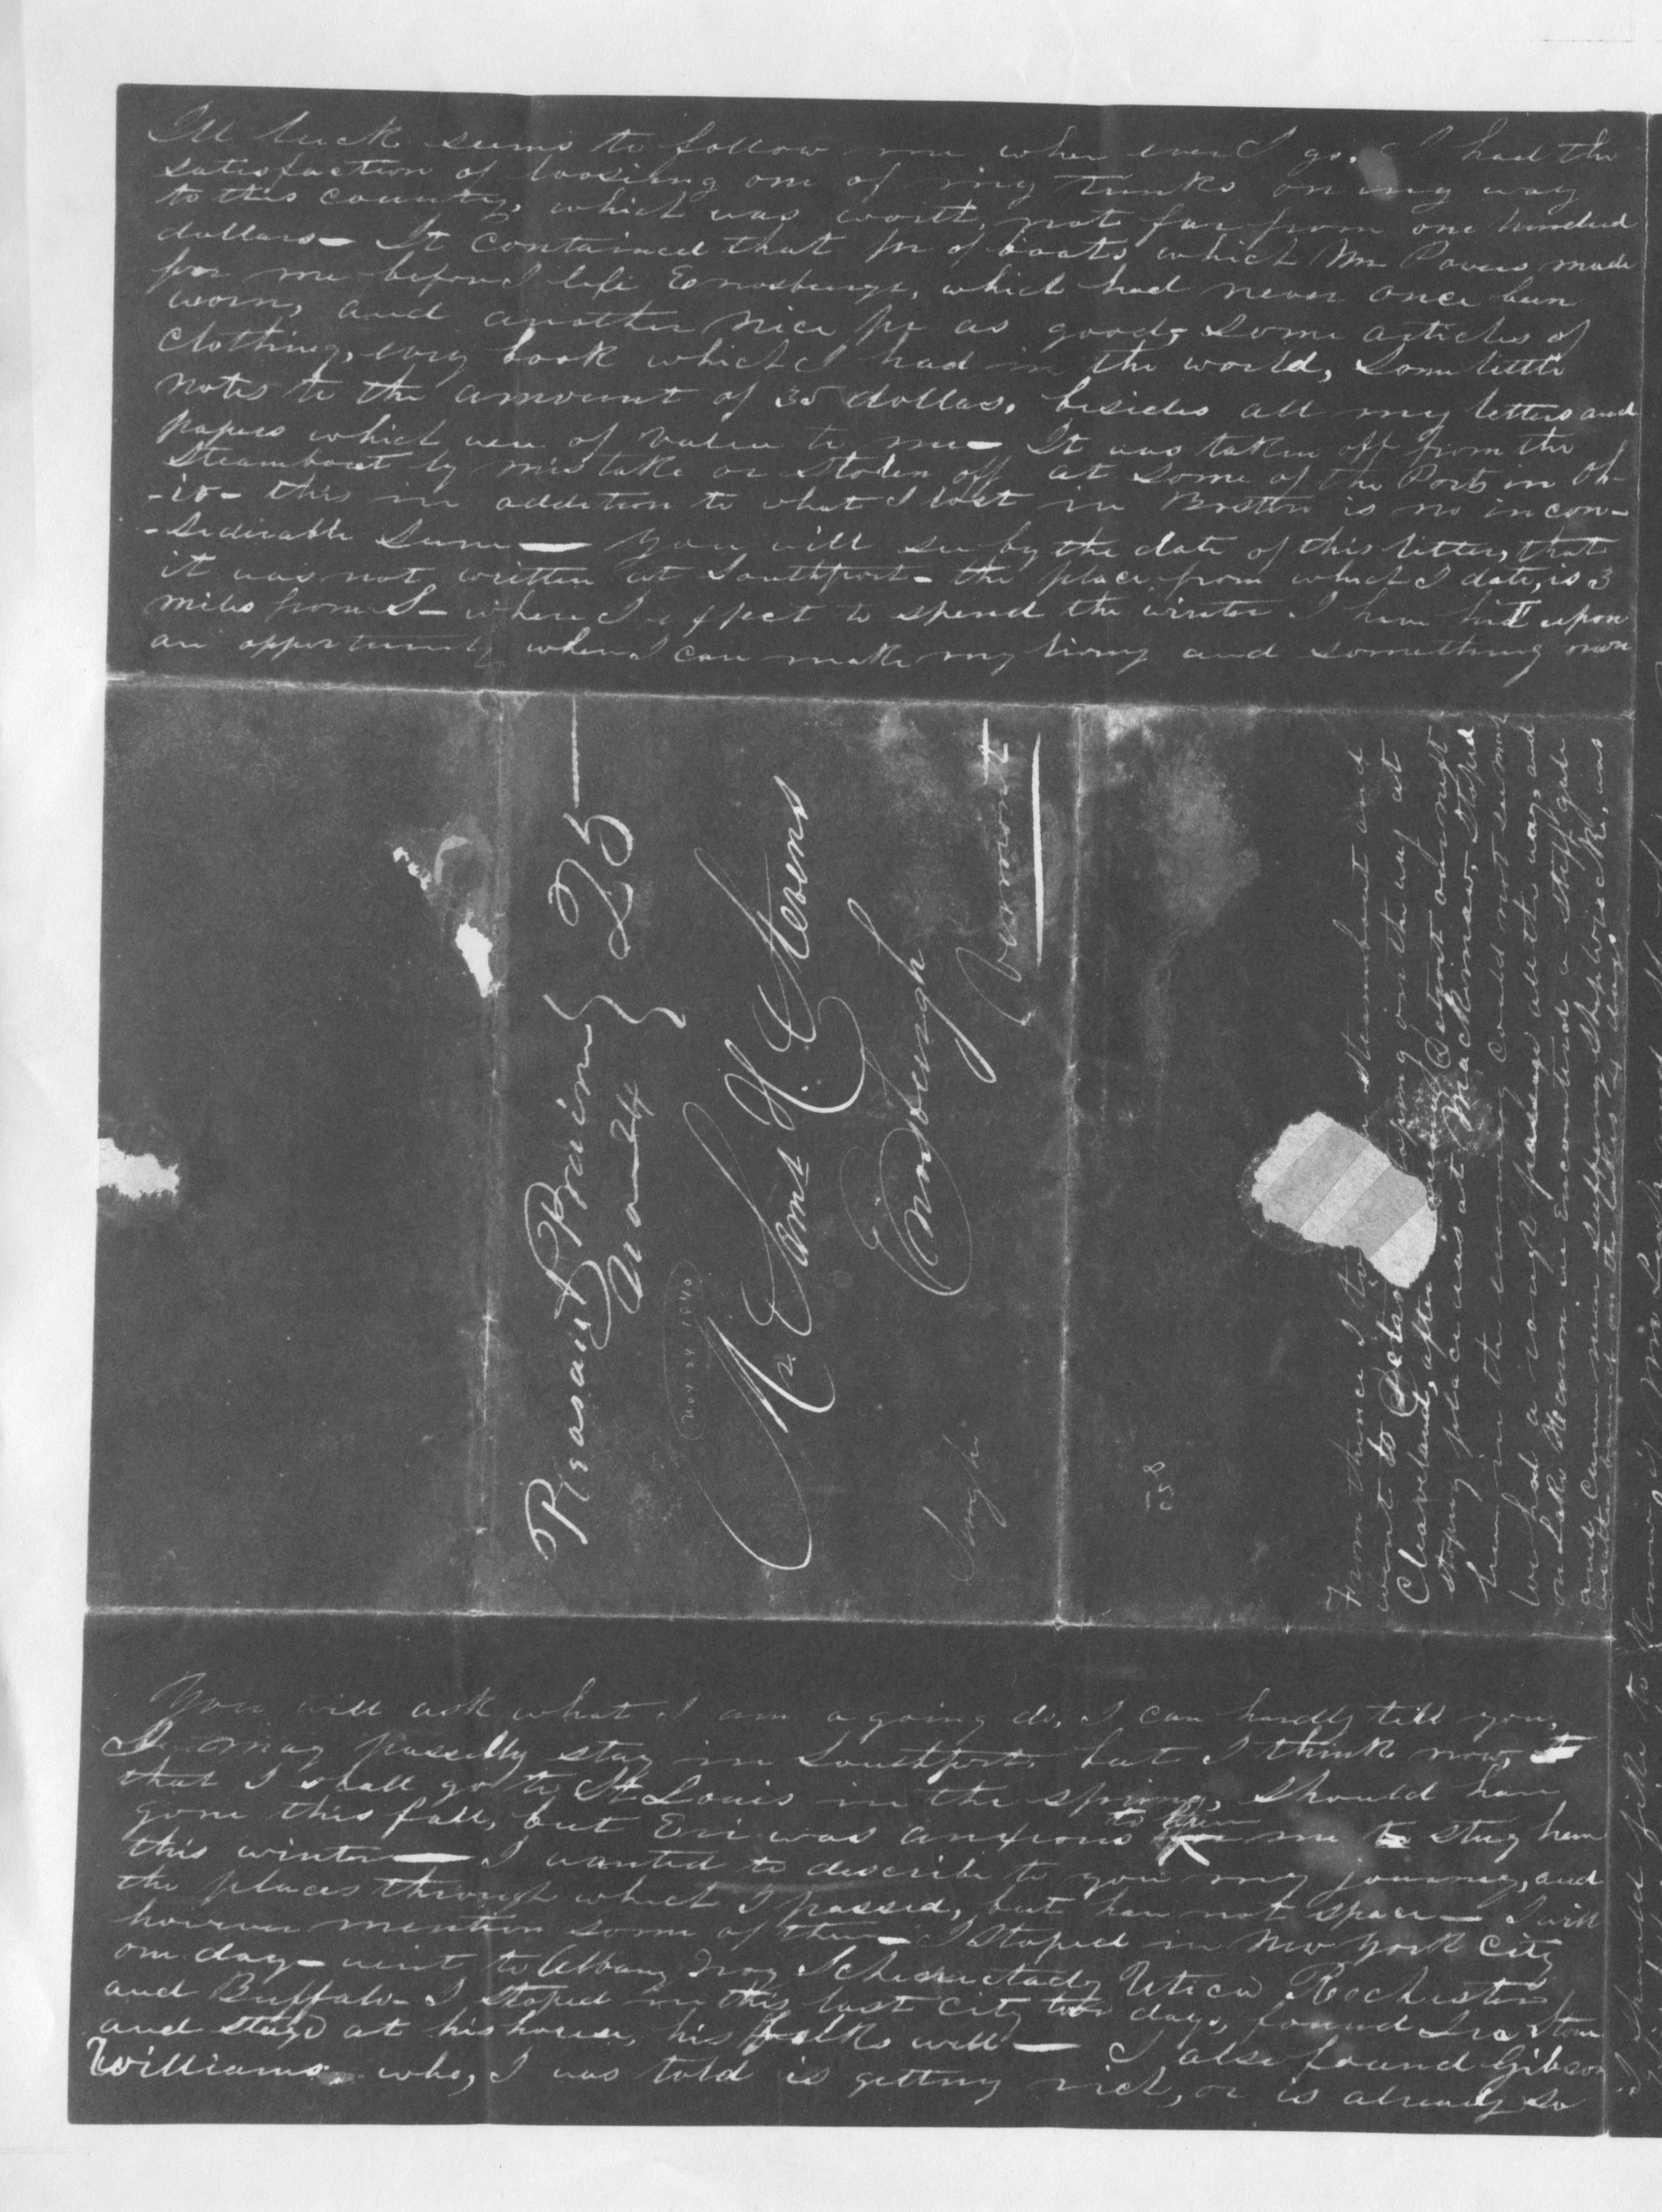 Ill luck seems to follow me when ever I go. I had the
satisfaction of loosing one of my trunks on my way
to this county, which was worth, not far from one hundred
dollars— It contained that pr of boots which Mr Powers made
for me before I left Enosburgh, which had never once been
worn, and another nice pr as good, some articles of
clothing, evry book which I had in the world, some little
notes to the amount of 35 dollars, besides all my letters and
papers which were of value to me— It was taken off from the
Steamboat by mistake or stolen off at some of the Ports in Oh-
-io- this in addition to what I lost in Boston is no incon-
-siderable sum— You will see by the date of this letter, that
it was not written at Southport— the place from which I date, is 3
miles from S— where I expect to spend the winter I have hit upon
an opportunity where I can make my living and something more
Pleasant Prairie } 25
Nov 24 }
NOV 24 1840
Mr. Eams H. Stevens
Enosburgh
Vermont
Single
From thence I steamboat and
went to on the way at
Cleaveland, after Detroit our next
stoping place was at Mackinaw. Stoped
here in the evening could not see much
We had a rough passage all the way, and
on Lake Huron we encountered a stiff gale
and came near suffering Shipwreck, was
on the Lakes 4 days
You will ask what I am a going do, I can hardly tell you,
I may possibly stay in Southport, but I think now,
that I shall go to St Louis in the spring, should have
gone this fall, but Eri was anxious to have me to stay here
this winter— I wanted to describe to you my journey, and
the places through which I passed, but have not space— I will
however mention some of them— I stoped in New York City
one day— went to Albany Troy Schenectady Utica Rochester
and Buffalo— I stoped in this last City two days, found Ira Stone
and stayd at his house, his folks well— I also found Gibson
Williams, who, I was told is getting rich, or is already so